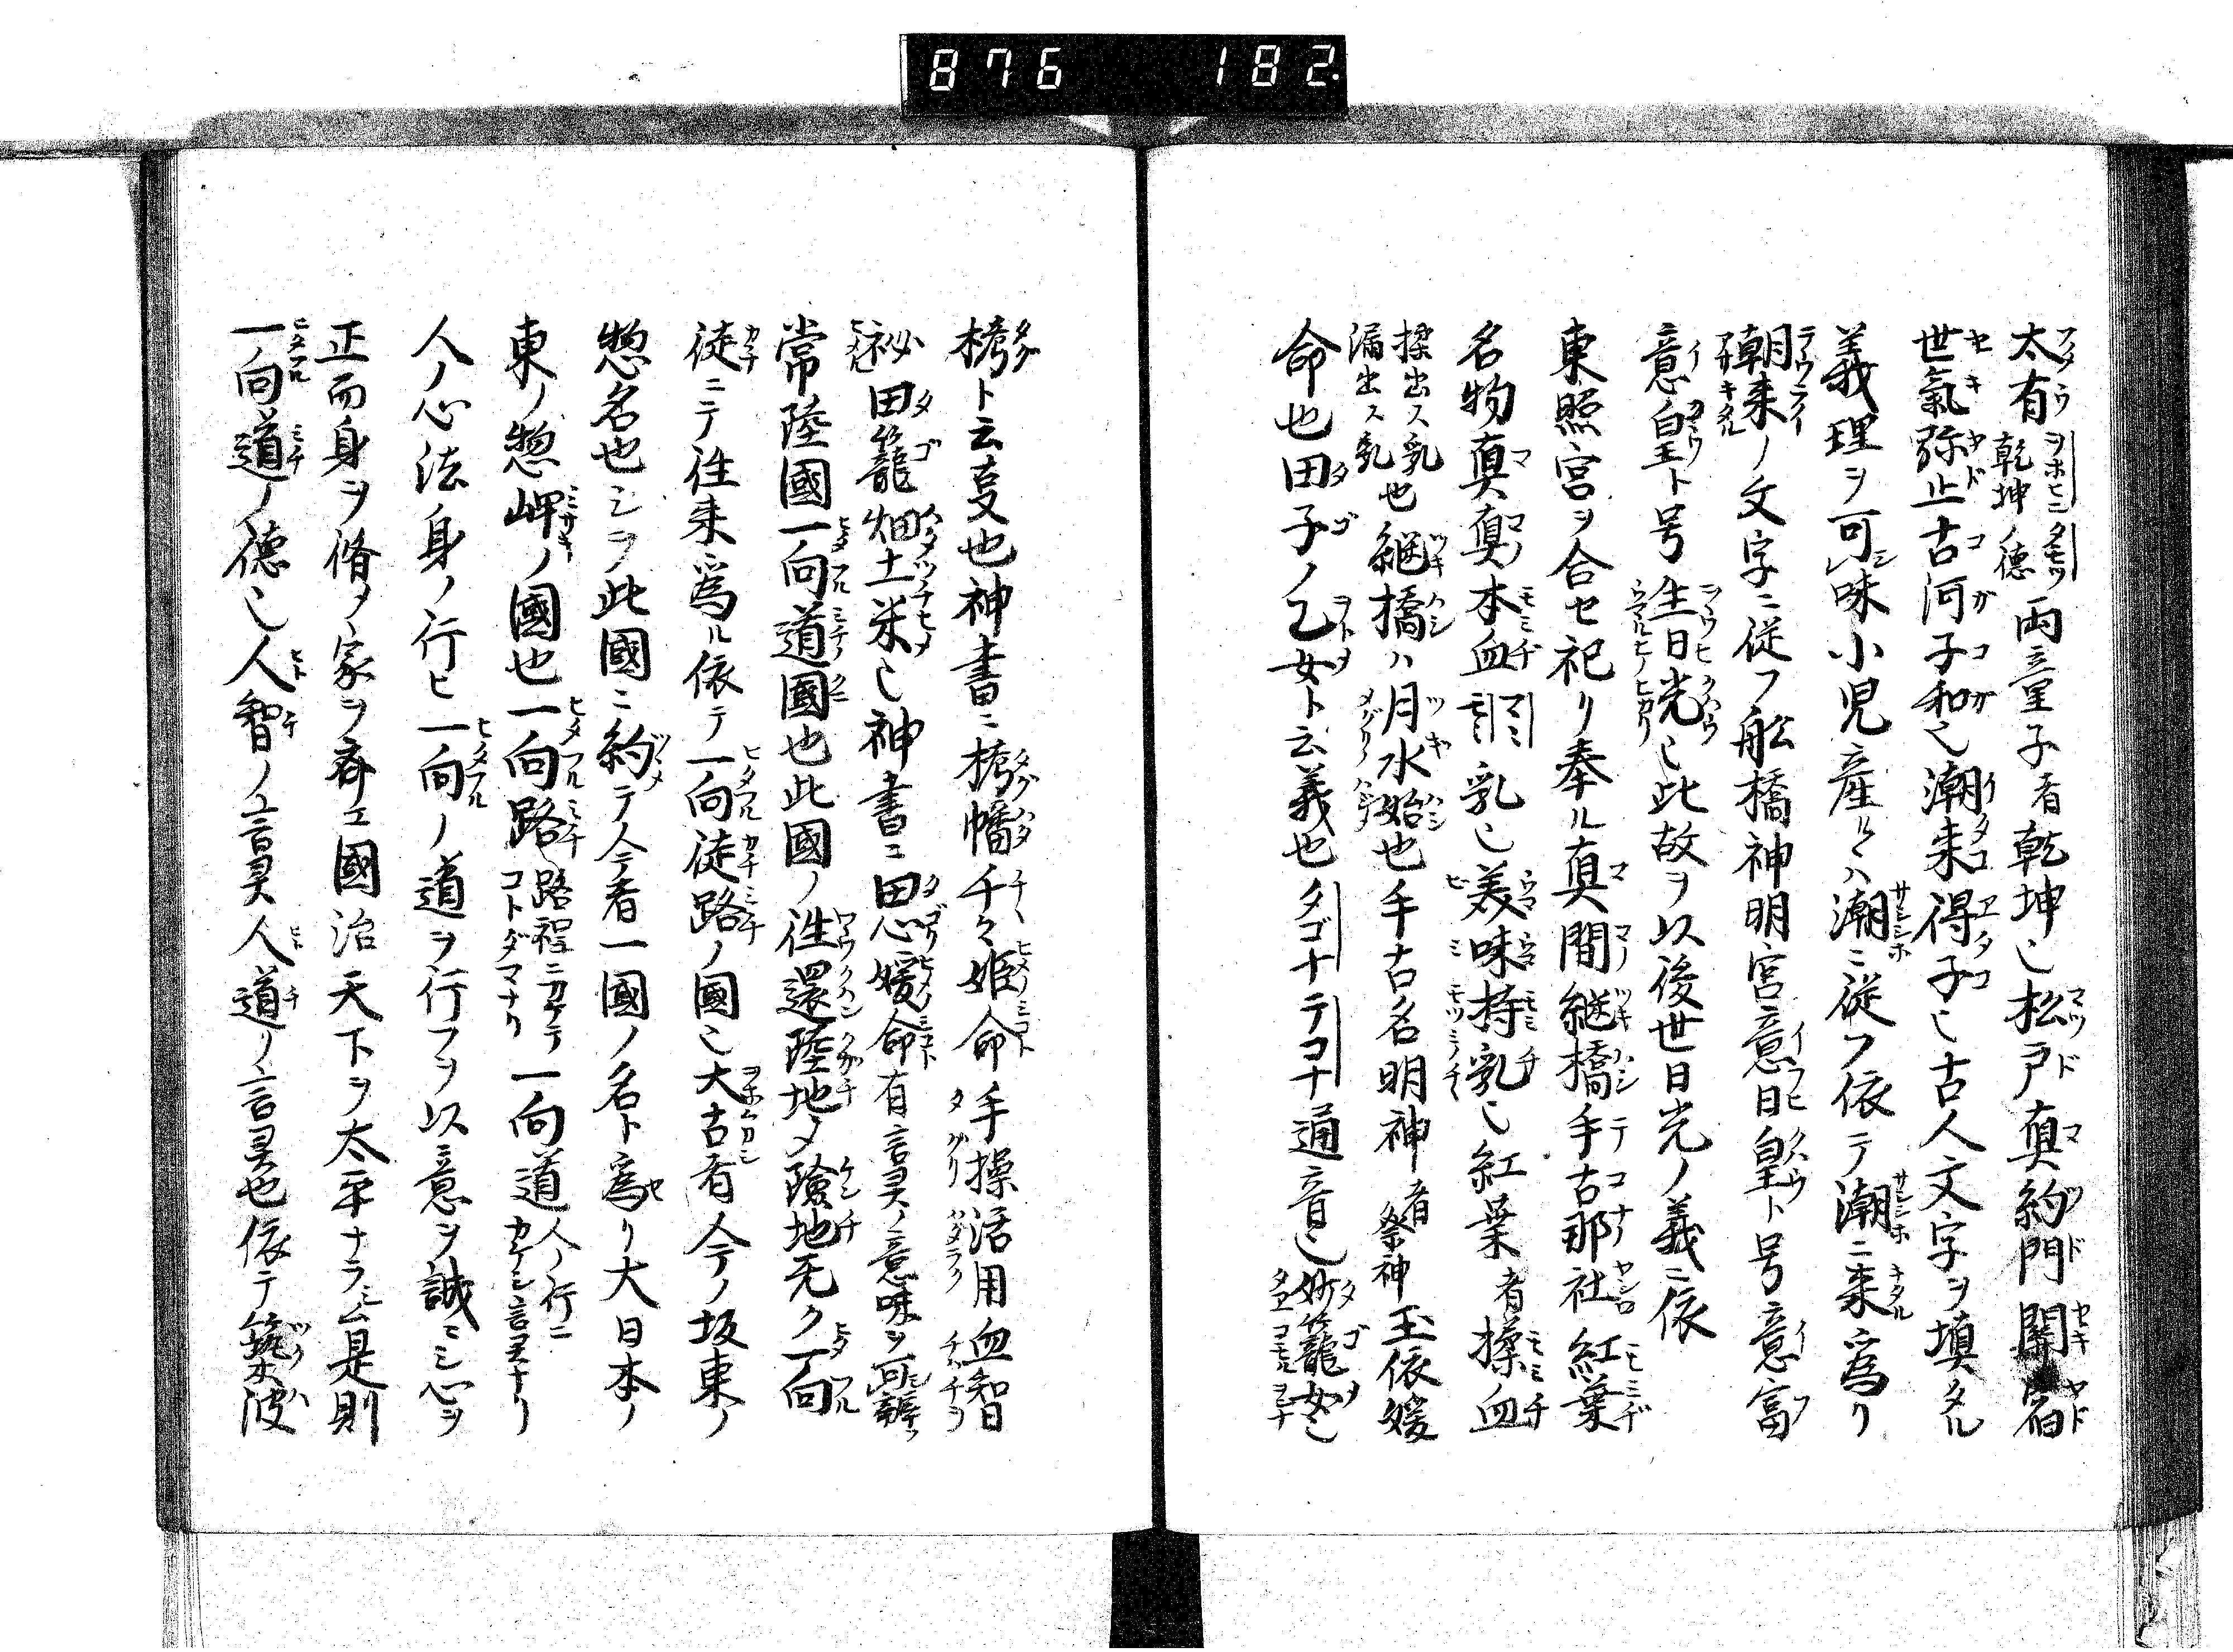 876 182
太有 乾坤ノ徳 両童子者乾坤也松戸真約門関宿
世氣弥止古河子和也潮来得子也古人文字ヲ填タル
義理ヲ可味小児産ルヽハ潮ニ従フ依テ潮ニ来為リ
朝来ノ文字ニ従フ舩橋神明宮意日皇ト号意富
意皇ト号生日光也此故ヲ以後世日光ノ義ニ依
東照宮ヲ合セ祀リ奉ル真間継橋手古那社紅葉
名物真真本血 乳也美味持乳也紅葉者揉血
揉出ス乳也
漏出ス乳也継橋ハ月水始也手古名明神者祭神玉依媛
命也田子ノ乙女ト云義也タゴナテコナ通音也妙籠女也
栲ト云叓也神書ニ栲幡千々姫命手操活用血智
祕田籠畑土米也神書ニ田心媛命有言灵ノ意味ヲ可辨
常陸國一向道國也此國ノ往還陸地ニ険地无ク一向
徒ニテ往来為ル依テ一向徒路ノ國也大古者今ノ坂東ノ
惣名也シヲ此國ニ約テ今者一國ノ名ト為リ大日本ノ
東ノ惣岬ノ國也一向路 路程ニカケテ コトダマナリ 一向道 人ノ行ニ カケシ言灵ナリ
人ノ心法身ノ行ヒ一向ノ道ヲ行フヲ以意ヲ誠ニシ心ヲ
正而身ヲ脩メ家ヲ斉エ國治天下ヲ太平ナラシム是則
一向道ノ徳也人智ノ言灵人道ノ言灵也依テ築波